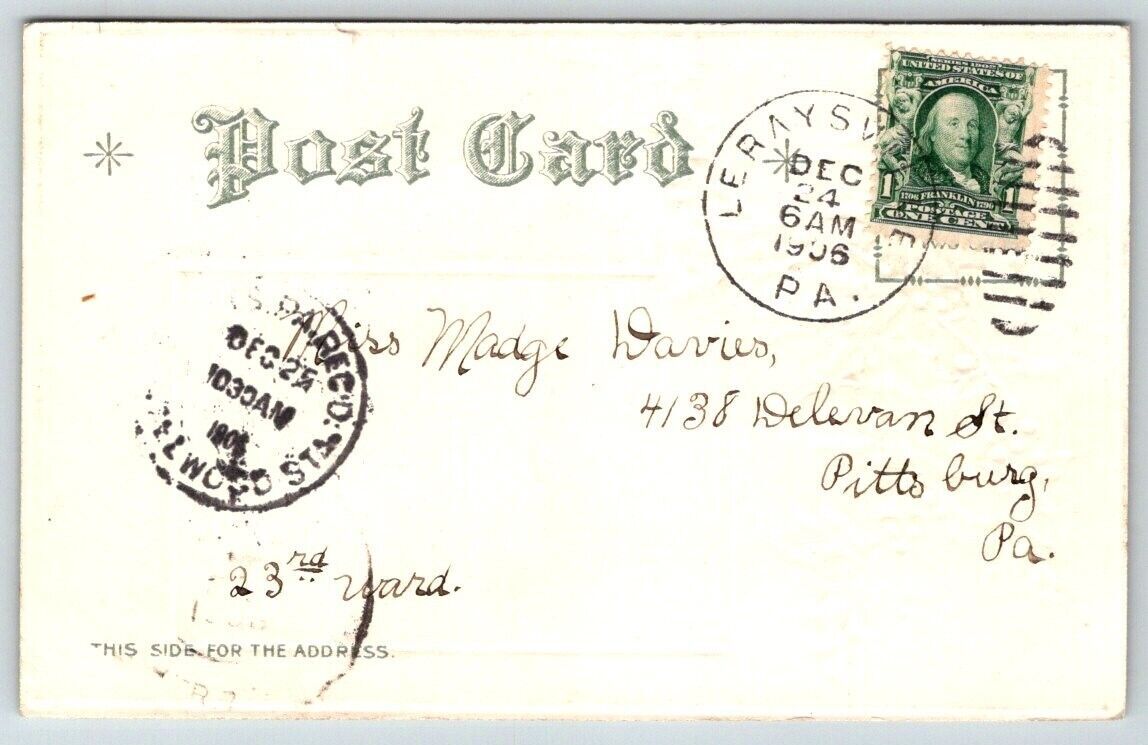 Post Card
LERAYSVILLE
DEC
24
6AM
1906
PA.
SERIES 1902
UNITED STATES OF
AMERICA
1 1
1706 FRANKLIN 1790
POSTAGE
ONE CENT
Miss Madge Davies,
4138 Delevan St.
Pittsburg,
Pa.
PA. REC'D.
DEC 25
1030AM
1906
STA
23rd ward.
THIS SIDE FOR THE ADDRESS.